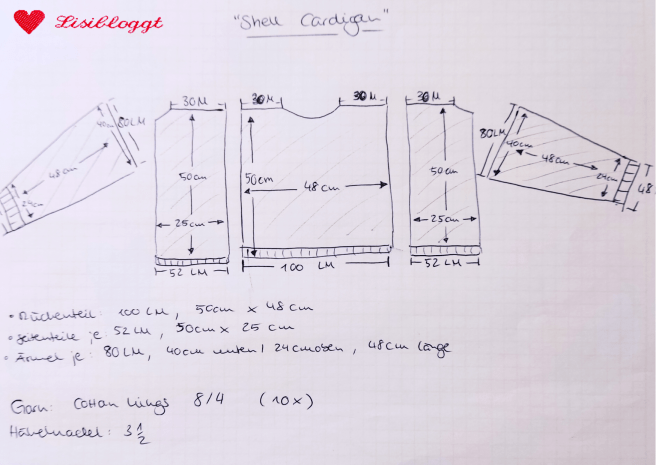 Lisibloggt
"Shell Cardigan"
30M 30M 30M 30M
40cm 80LM
48cm
24cm
50cm
25cm
52 LM
50cm
48cm
100 LM
50cm
25cm
52 LM
80LM
40cm
48cm
24cm
48
• Rückenteil: 100 LM, 50cm x 48cm
• Seitenteile je: 52 LM, 50cm x 25 cm
• Ärmel je: 80 LM, 40cm unten / 24cm oben, 48cm länge
Garn: Cotton Kings 8/4 (10x)
Häkelnadel: 3 1/2